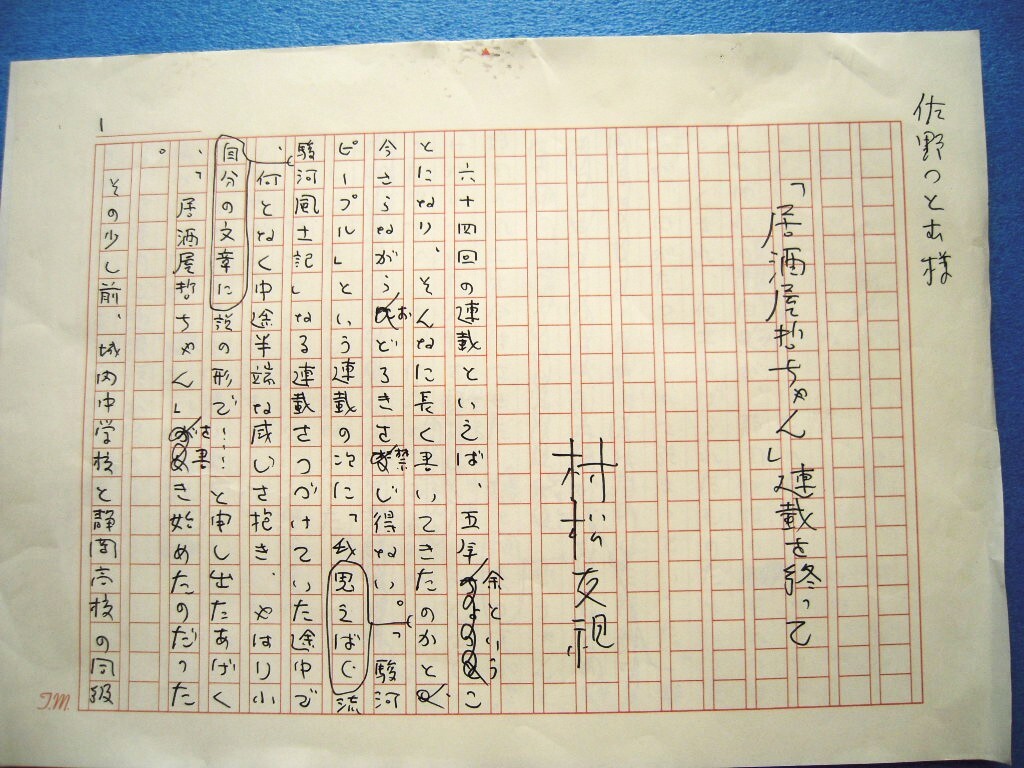 佐野つとむ様
「居酒屋哲ちゃん」連載を終って
村松友視
六十四回の連載といえば、五年余というこ
とになり、そんなに長く書いてきたのかと
今さらながらおどろきを禁じ得ない。「駿河
ピープル」という連載の次に「我思えば流
駿河風土記」なる連載をつづけていた途中で
、何となく中途半端な感じを抱き、やはり小
自分の文章に説の形で……と申し出たあげく
、「居酒屋哲ちゃん」を書き始めたのだった
。
その少し前、城内中学校と静岡高校の同級
1
T.M.